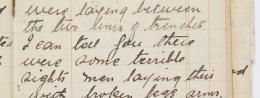 were laying between
the two lines of trenches
I can tell you there
were some terrible
sights men laying their
with broken legs arms.